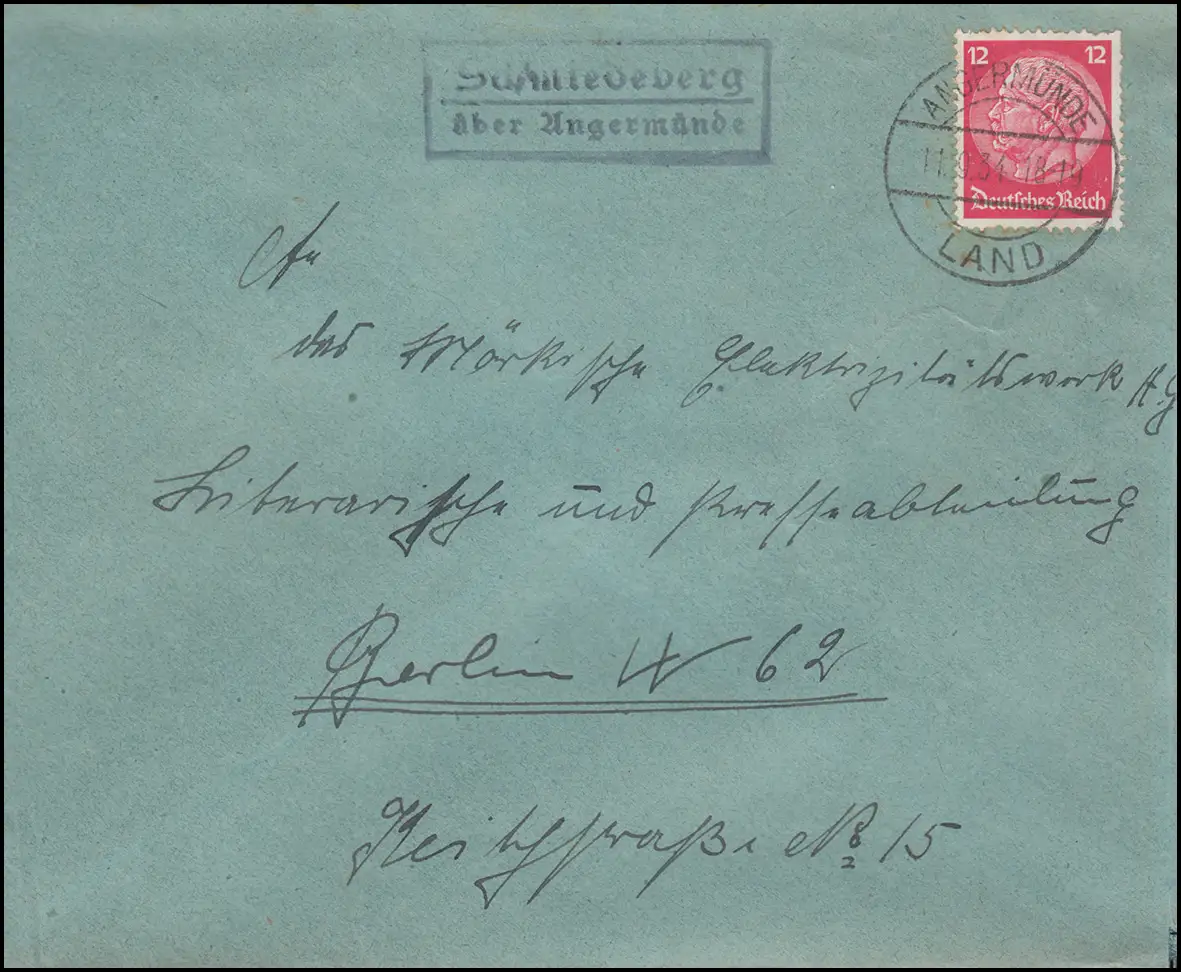 Schmiedeberg
über Angermünde
12 12
Deutsches Reich
ANGERMÜNDE
11.9.34 18-19
LAND
An
das Märkische Elektrizitätswerk A.G
Literarische und Presseabteilung
Berlin W 62
straße No 15